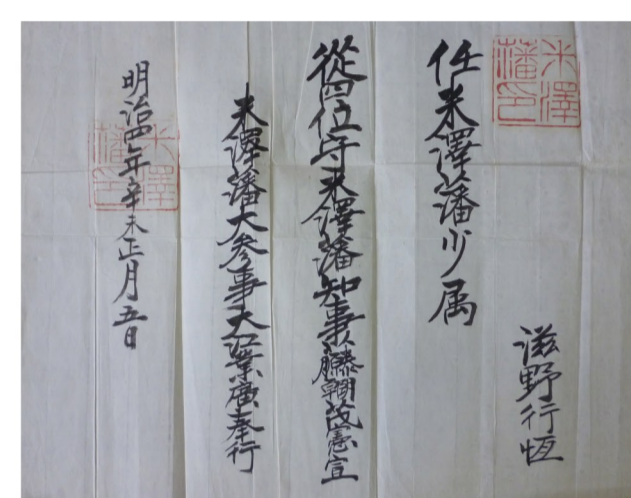 米澤藩印
滋野行恆
任米澤藩少属
從四位守米澤藩知事藤朝茂憲宣
米澤藩大参事大江業廣奉行
明治四年辛未正月五日
米澤藩印